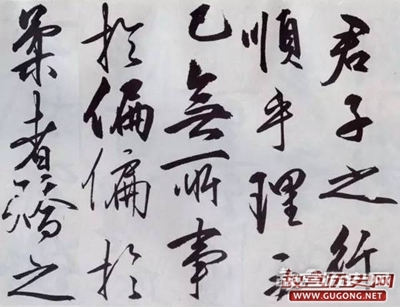 君子之行
順乎理而
已無所事
於偏偏於
柔者濟之
故宫历史网
WWW.GUGONG.NET